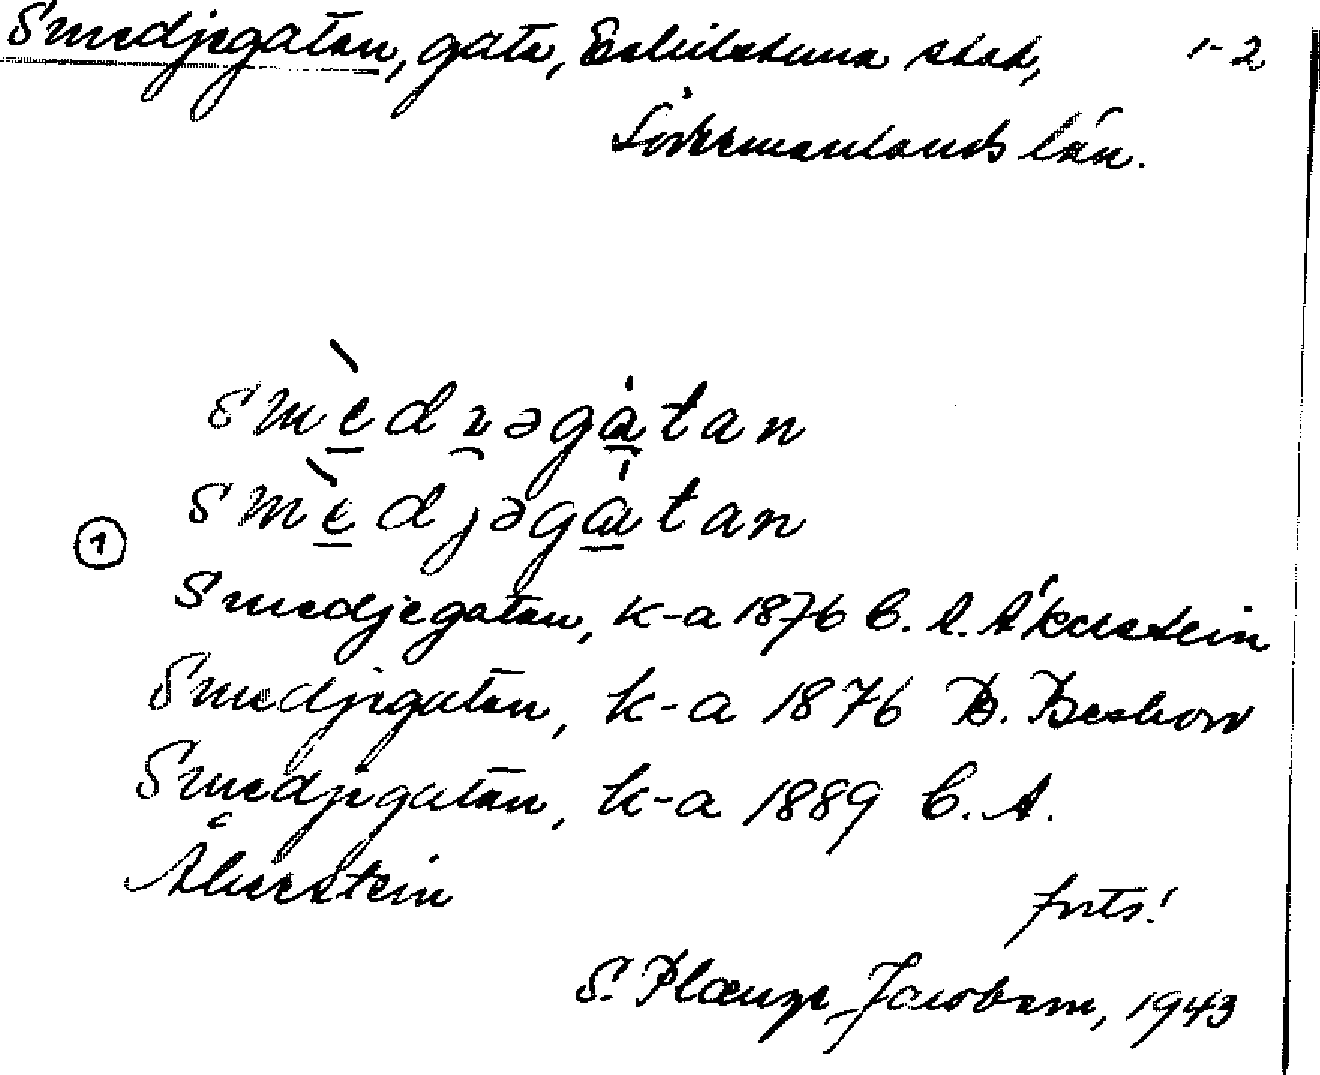 Smedjegatan, gata, Eskilstuna stad, 1-2
Södermanlands län.
smèdɿəgàtan
smèdjəgàtan
①
Smedjegatan, k-a 1876 C. A. Åkerstein
Smedjegatan, k-a 1876 B. Beskow
Smedjegatan, k-a 1889 C. A.
Åkerstein
forts!
S. Jacobson, 1943